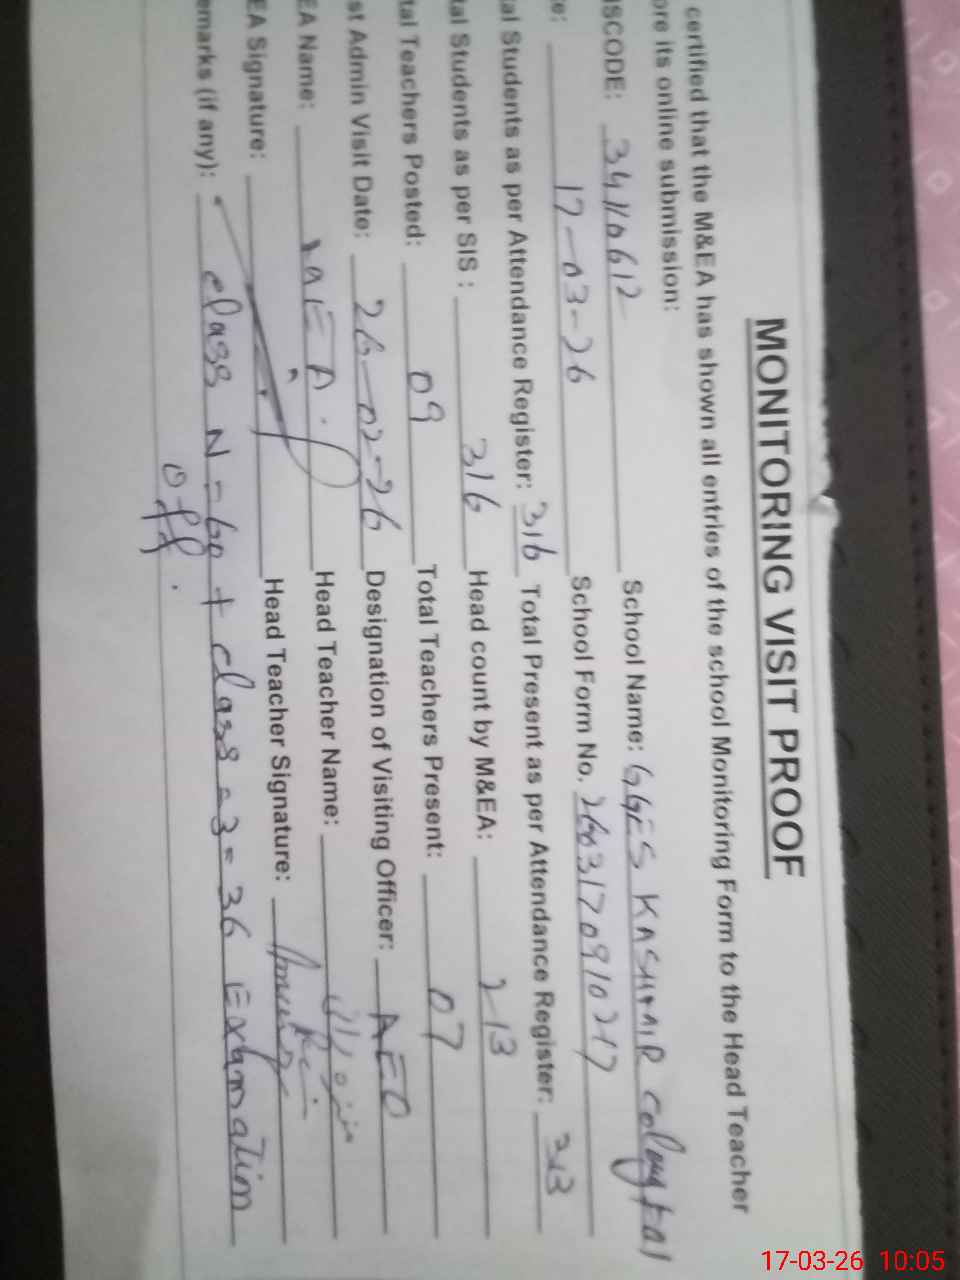 MONITORING VISIT PROOF
certified that the M&EA has shown all entries of the school Monitoring Form to the Head Teacher
ore its online submission:
SCODE: 34110612 School Name: GGES KASHMIR
e: 17-03-26 School Form No.
al Students as per Attendance Register: 316 Total Present as per Attendance Register: 313
tal Students as per SIS: 316 Head count by M&EA: 213
tal Teachers Posted: 09 Total Teachers Present: 07
st Admin Visit Date: 26-02-26 Designation of Visiting Officer: AEO
EA Name: Head Teacher Name:
EA Signature: Head Teacher Signature:
emarks (if any): class N-60 + class-3=36 Exámation
off.
17-03-26 10:05